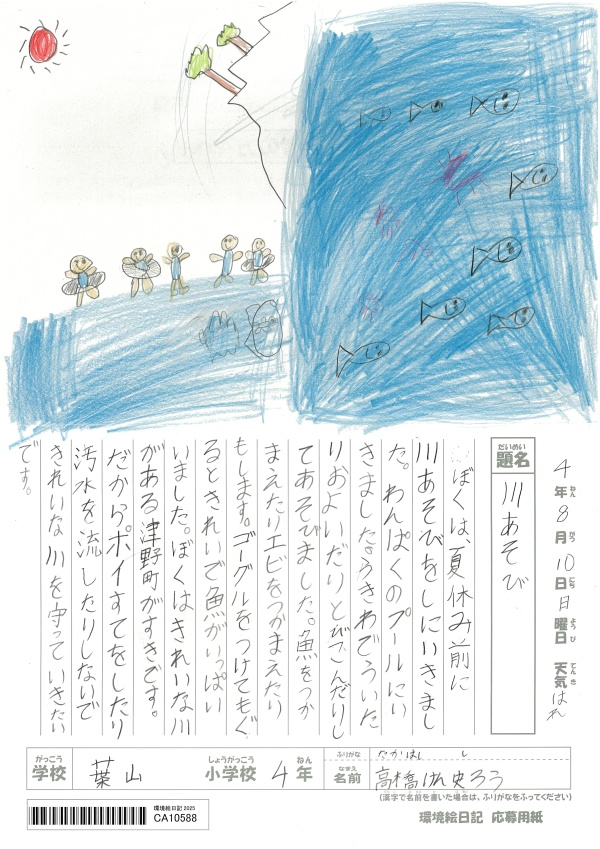 4年8月10日日曜日 天気はれ
題名 川あそび
ぼくは、夏休み前に
川あそびをしにいきまし
た。わんぱくのプールにい
きました。うきわでういた
りおよいだりとびこんだりし
てあそびました。魚をつか
まえたりエビをつかまえたり
もします。ゴーグルをつけてもぐ
るときれいで魚がいっぱい
いました。ぼくはきれいな川
がある津野町がすきです。
だから、ポイすてをしたり
汚水を流したりしないで
きれいな川を守っていきたい
です。
がっこう しょうがっこう ねん
学校 葉山 小学校 4年
ふりがな たかはし
なまえ
名前 高橋けん史ろう
(漢字で名前を書いた場合は、ふりがなをふってください)
環境絵日記 2025
CA10588
環境絵日記 応募用紙